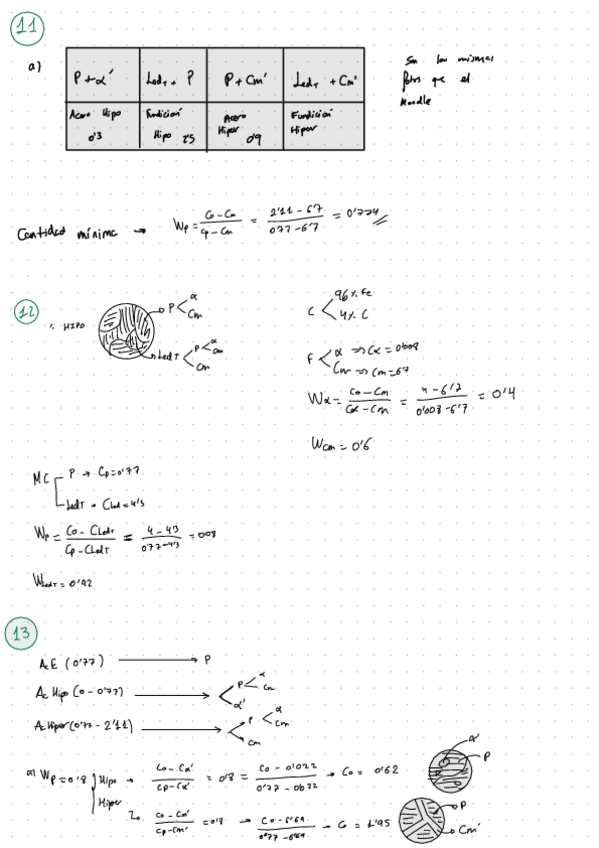 11
a)
P + α' | Led_T + P | P + Cm' | Led_T + Cm'
Acero Hipo 0'3 | Fundición Hipo 2'5 | Acero Hiper 0'9 | Fundición Hiper
Son las mismas
fotos que el
Moodle
Cantidad mínima → Wp = (Co - Cm) / (Cp - Cm) = (2'11 - 6'7) / (0'77 - 6'7) = 0'774
12
HIPO
P < α
Cm
LedT < P < α
Cm
Cm
C < 96 % Fe
4 % C
F < α ⇒ Cα = 0'008
Cm ⇒ Cm = 6'7
Wα = (Co - Cm) / (Cα - Cm) = (4 - 6'7) / (0'008 - 6'7) = 0'4
Wcm = 0'6
MC
P → Cp = 0'77
LedT → CLed = 4'3
Wp = (Co - CLedT) / (Cp - CLedT) = (4 - 4'3) / (0'77 - 4'3) = 0'08
WLedT = 0'92
13
Ac E (0'77) → P
Ac Hipo (0 - 0'77) → < P < α
Cm
α'
Ac Hiper (0'77 - 2'11) → < P < α
Cm
Cm
a) Wp = 0'8
Hipo → (Co - Cα') / (Cp - Cα') = 0'8 = (Co - 0'022) / (0'77 - 0'022) → Co = 0'62
α'
P
Hiper
(Co - Cm') / (Cp - Cm') = 0'8 → (Co - 6'69) / (0'77 - 6'69) → Co = 1'95
P
Cm'